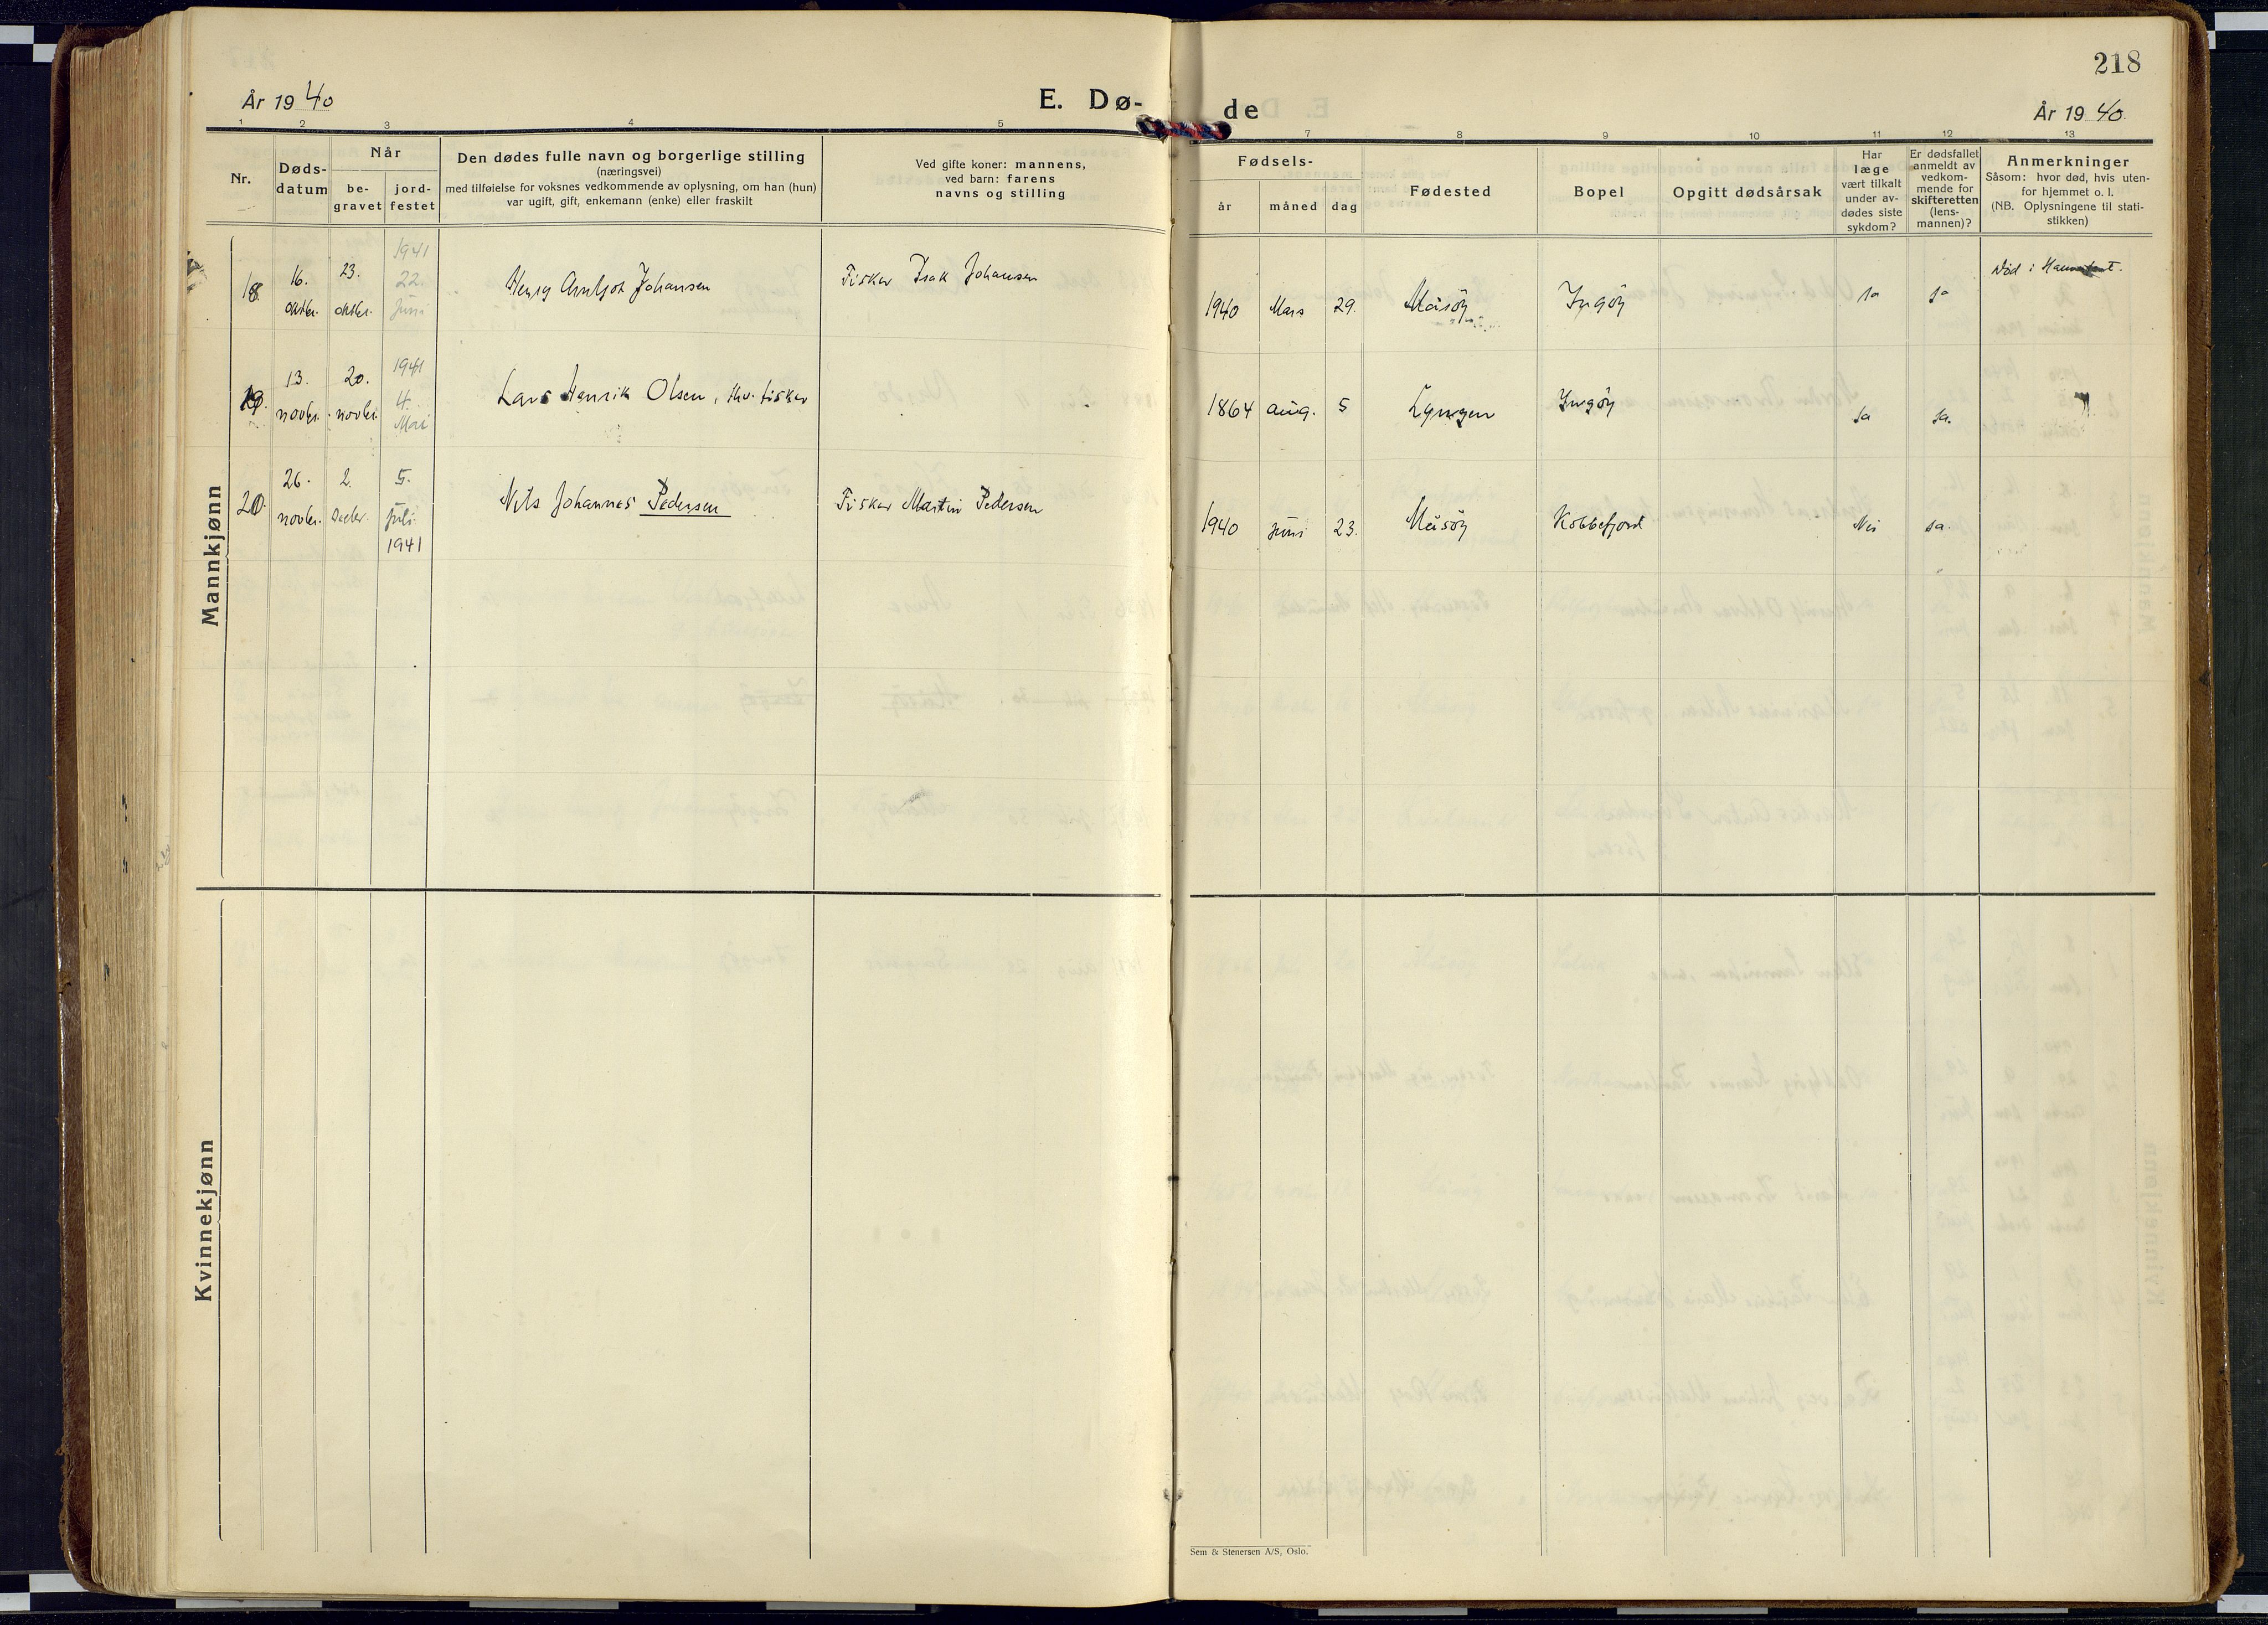 218
År 1940 E. Dø- de År 1940.
1 2 3 4 5 7 8 9 10 11 12 13
Nr.
Døds-
datum
Når
be-
gravet
jord-
festet
Den dødes fulle navn og borgerlige stilling
(næringsvei)
med tilføielse for voksnes vedkommende av oplysning, om han (hun)
var ugift, gift, enkemann (enke) eller fraskilt
Ved gifte koner: mannens,
ved barn: farens
navns og stilling
Fødsels-
år måned dag
Fødested
Bopel
Opgitt dødsårsak
Har
læge
vært tilkalt
under av-
dødes siste
sykdom?
Er dødsfallet
anmeldt av
vedkom-
mende for
skifteretten
(lens-
mannen)?
Anmerkninger
Såsom: hvor død, hvis uten-
for hjemmet o. l.
(NB. Oplysningene til stati-
stikken)
Mannkjønn
18 16. oktbr. 23. oktbr. 1941 22. juni Henry Arnljot Johansen Fisker Isak Johansen 1940 Mars 29. Måsöy Ingöy Ja Ja Död i
19. 13. novbr. 20. novbr. 1941 4. Mai Lars Henrik Olsen, fhv. fisker 1864 aug. 5 Lyngen Ingöy Ja Ja.
20. 26. novbr. 2. Decbr. 5. juli 1941 Nils Johannes Pedersen Fisker Martin Pedersen 1940 juni 23. Måsöy Kobbefjord Nei Ja.
Kvinnekjønn
Sem & Stenersen A/S, Oslo.